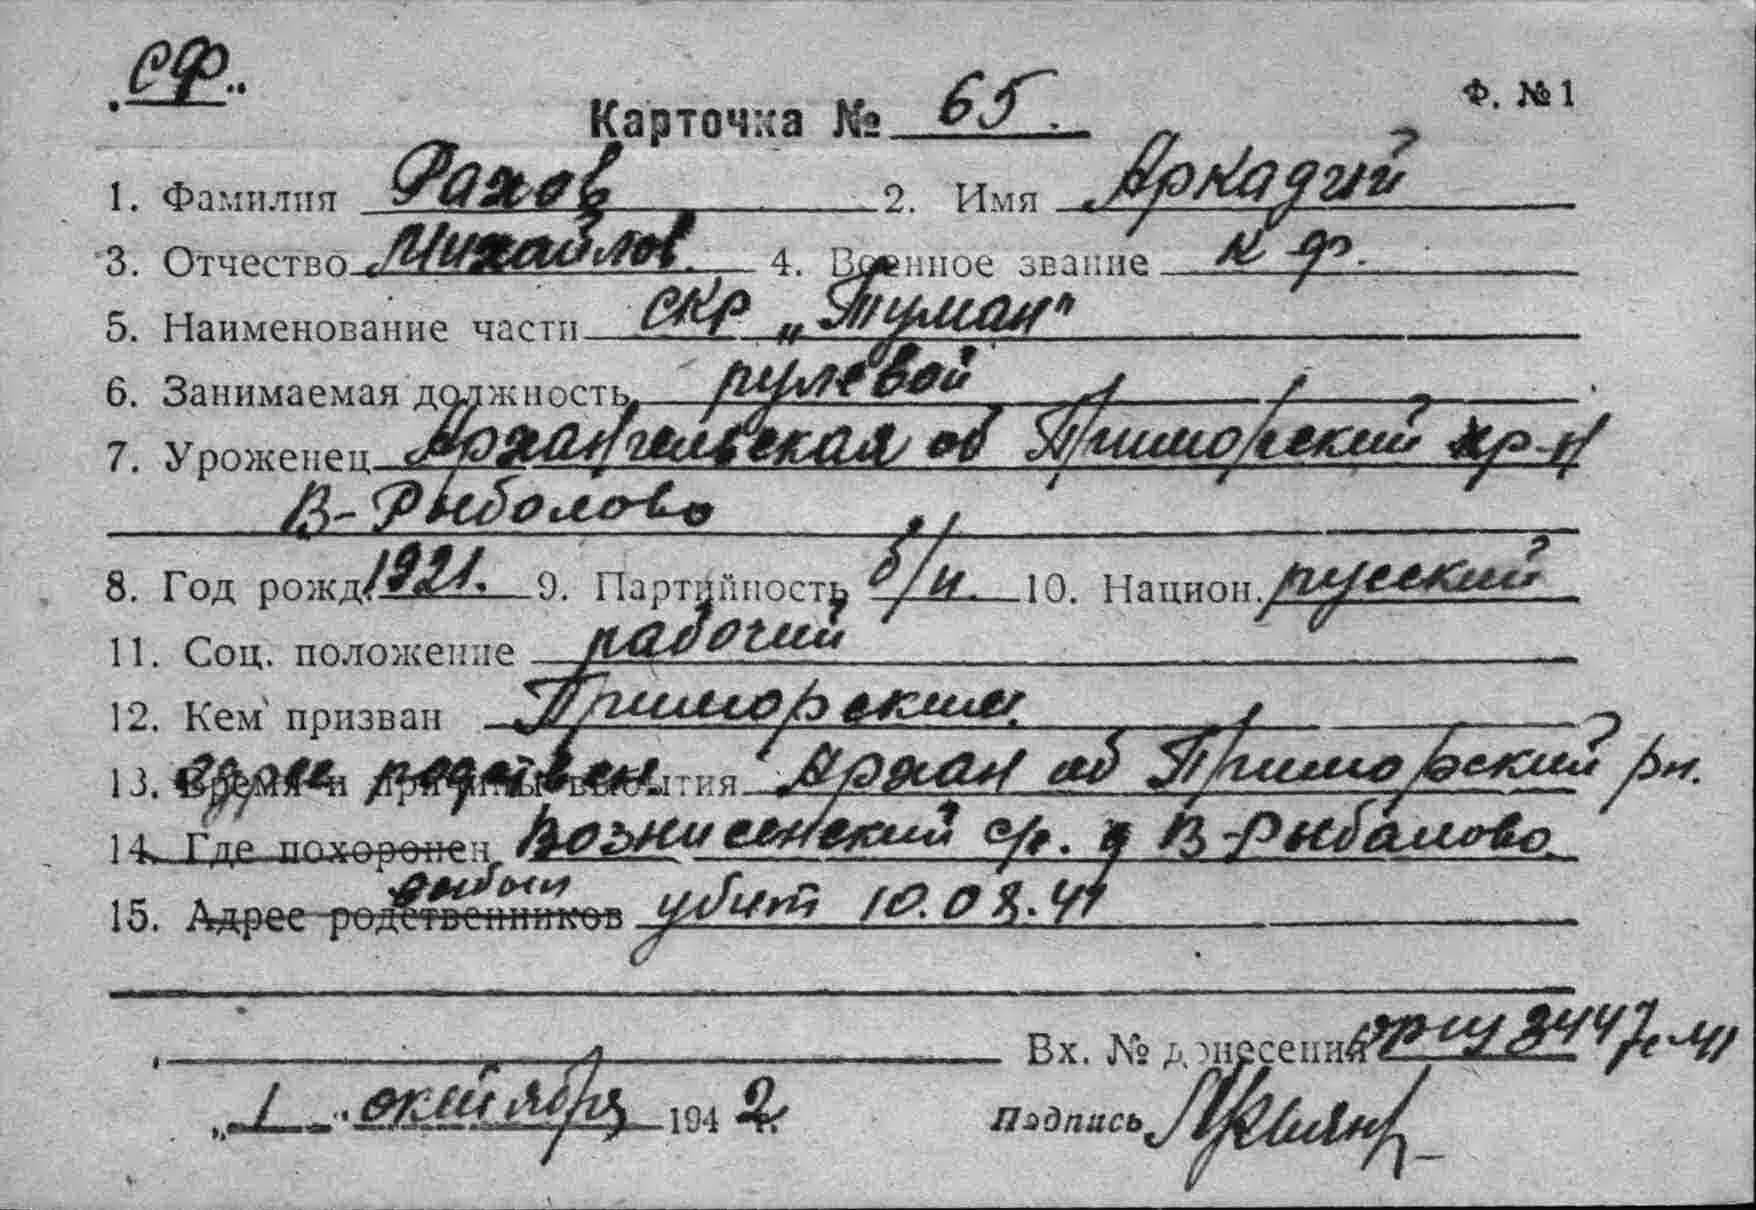 СФ.
Ф. № 1
Карточка № 65.
1. Фамилия Рахов 2. Имя Аркадий
3. Отчество Михайлов. 4. Военное звание к ф.
5. Наименование части скр „Туман"
6. Занимаемая должность рулевой
7. Уроженец Архангельская об Приморский р-н
В-Рыболово
8. Год рожд. 1921. 9. Партийность б/п. 10. Национ. русский
11. Соц. положение рабочий
12. Кем призван Приморским.
13. Время и причины выбытия адрес родствен. Архан об Приморский рн.
14. Где похоронен Вознисенский с/с. д В-Рыбалово
выбыл
15. Адрес родственников убит 10.08.41
Вх. № донесения 3447
„1" октября 1942 г. Подпись